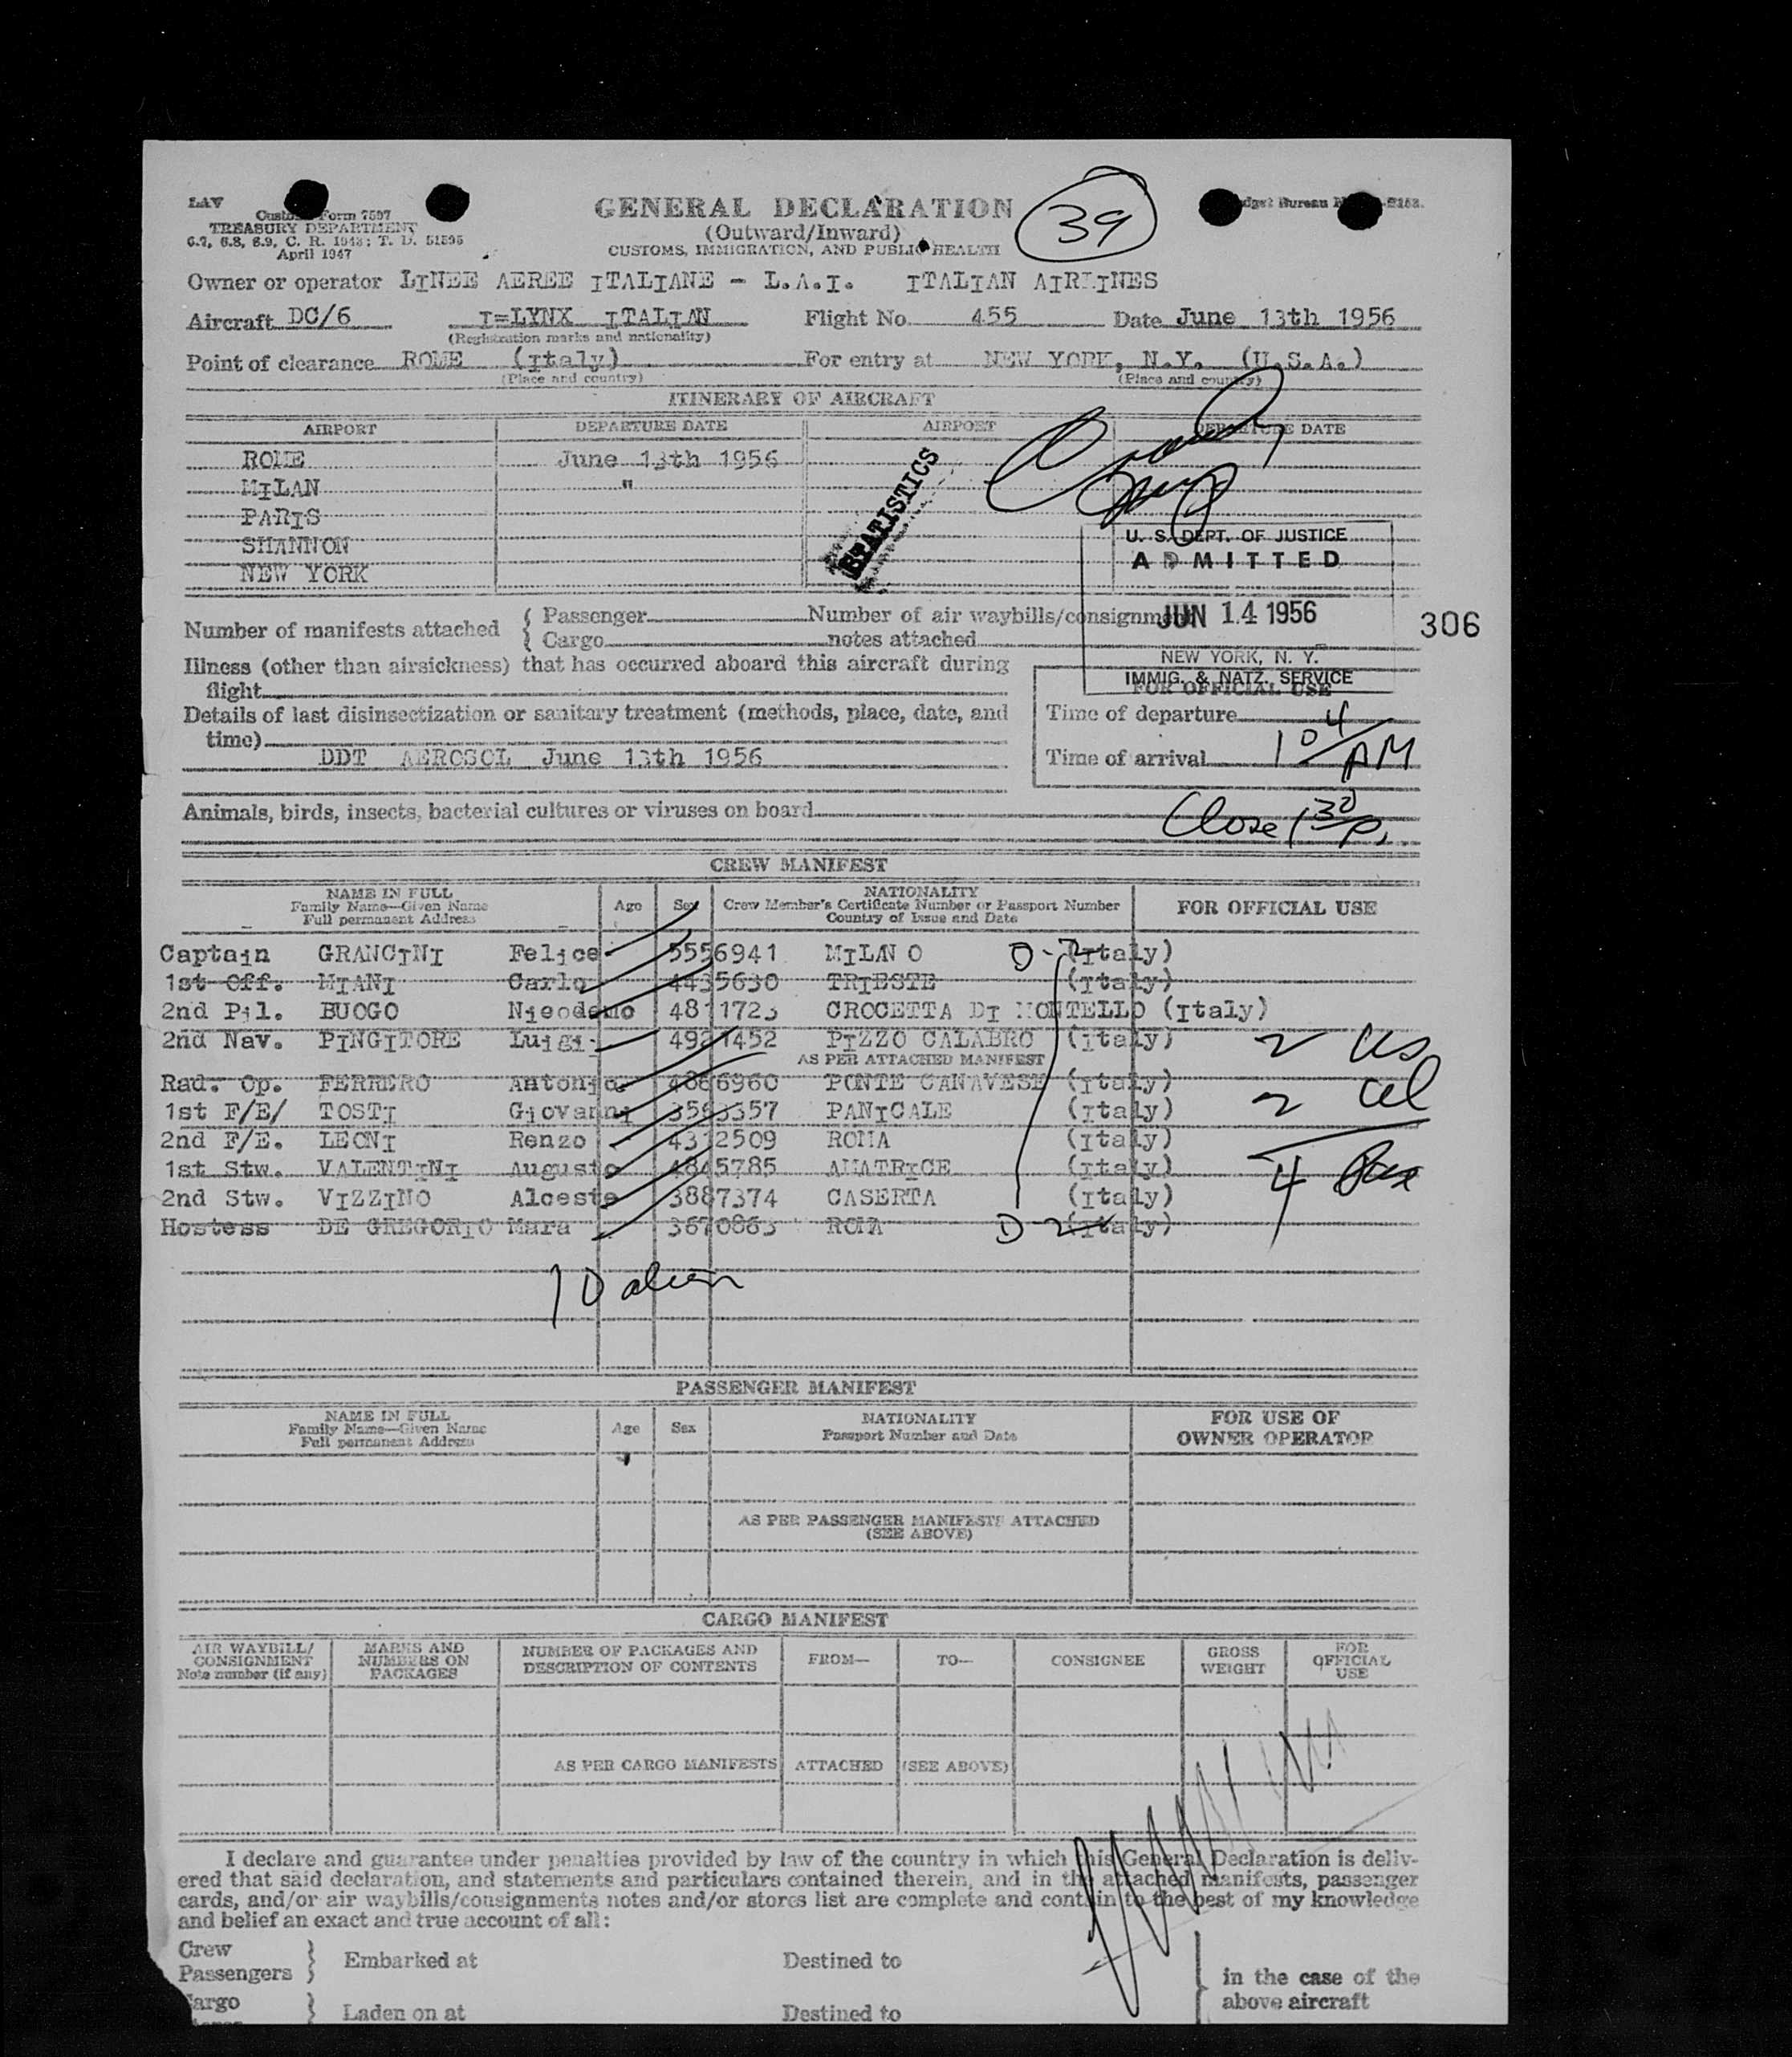 LAV
Customs Form 7507
TREASURY DEPARTMENT
6.7, 6.8, 6.9, C. R. 1943; T. D. 51595
April 1947
GENERAL DECLARATION
(Outward/Inward)
CUSTOMS, IMMIGRATION, AND PUBLIC HEALTH
39
Budget Bureau
Owner or operator LINEE AEREE ITALIANE - L.A.I. ITALIAN AIRLINES
Aircraft DC/6 I=LYNX ITALIAN Flight No. 455 Date June 13th 1956
(Registration marks and nationality)
Point of clearance ROME (Italy) For entry at NEW YORK, N.Y. (U.S.A.)
(Place and country) (Place and country)
ITINERARY OF AIRCRAFT
AIRPORT DEPARTURE DATE AIRPORT DEPARTURE DATE
ROME June 13th 1956
MILAN "
PARIS
SHANNON
NEW YORK
STATISTICS
U. S. DEPT. OF JUSTICE
ADMITTED
JUN 14 1956
NEW YORK, N. Y.
IMMIG. & NATZ. SERVICE
306
Number of manifests attached { Passenger Number of air waybills/consignment
Cargo notes attached
Illness (other than airsickness) that has occurred aboard this aircraft during
flight
FOR OFFICIAL USE
Details of last disinsectization or sanitary treatment (methods, place, date, and
time)
DDT AEROSOL June 13th 1956
Time of departure
Time of arrival 1 04/AM
Animals, birds, insects, bacterial cultures or viruses on board
Close 1 30/P.
CREW MANIFEST
NAME IN FULL
Family Name—Given Name
Full permanent Address
Age Sex
NATIONALITY
Crew Member's Certificate Number or Passport Number
Country of Issue and Date
FOR OFFICIAL USE
Captain GRANCINI Felice 5556941 MILANO D-2 (Italy)
1st Off. MIANI Carlo 4435630 TRIESTE (Italy)
2nd Pil. BUOGO Nicodemo 4811723 CROCETTA DI MONTELLO (Italy)
2nd Nav. PINGITORE Luigi 4921452 PIZZO CALABRO (Italy) 2 US
AS PER ATTACHED MANIFEST
Rad. Op. FERRERO Antonio 4866960 PONTE CANAVESE (Italy) 2 al
1st F/E/ TOSTI Giovanni 3563357 PANICALE (Italy)
2nd F/E. LEONI Renzo 4312509 ROMA (Italy)
1st Stw. VALENTINI Augusto 4845785 AMATRICE (Italy) 4 Pax
2nd Stw. VIZZINO Alceste 3887374 CASERTA (Italy)
Hostess DE GREGORIO Mara 3670863 ROMA D-2 (Italy)
10 alien
PASSENGER MANIFEST
NAME IN FULL
Family Name—Given Name
Full permanent Address
Age Sex
NATIONALITY
Passport Number and Date
FOR USE OF
OWNER OPERATOR
AS PER PASSENGER MANIFESTS ATTACHED
(SEE ABOVE)
CARGO MANIFEST
AIR WAYBILL/
CONSIGNMENT
Note number (if any)
MARKS AND
NUMBERS ON
PACKAGES
NUMBER OF PACKAGES AND
DESCRIPTION OF CONTENTS
FROM— TO— CONSIGNEE
GROSS
WEIGHT
FOR
OFFICIAL
USE
AS PER CARGO MANIFESTS ATTACHED (SEE ABOVE)
I declare and guarantee under penalties provided by law of the country in which this General Declaration is deliv-
ered that said declaration, and statements and particulars contained therein, and in the attached manifests, passenger
cards, and/or air waybills/consignments notes and/or stores list are complete and contain to the best of my knowledge
and belief an exact and true account of all:
Crew
Passengers } Embarked at Destined to
in the case of the
above aircraft
Cargo
Laden on at Destined to